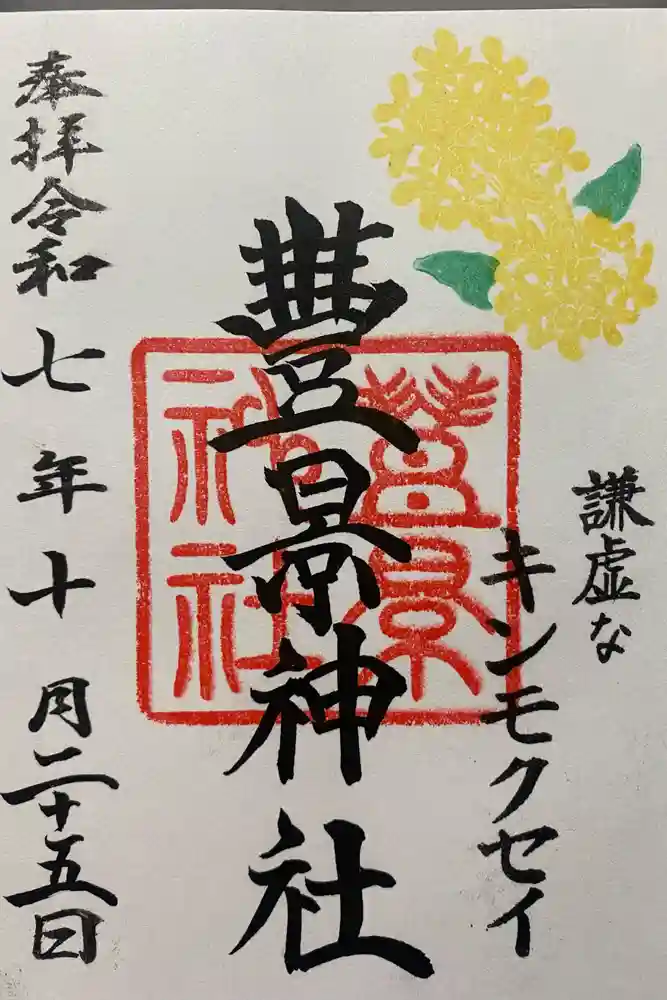 謙虚な
キンモクセイ
豐景神社
豐景神社
奉拝令和七年十月二十五日